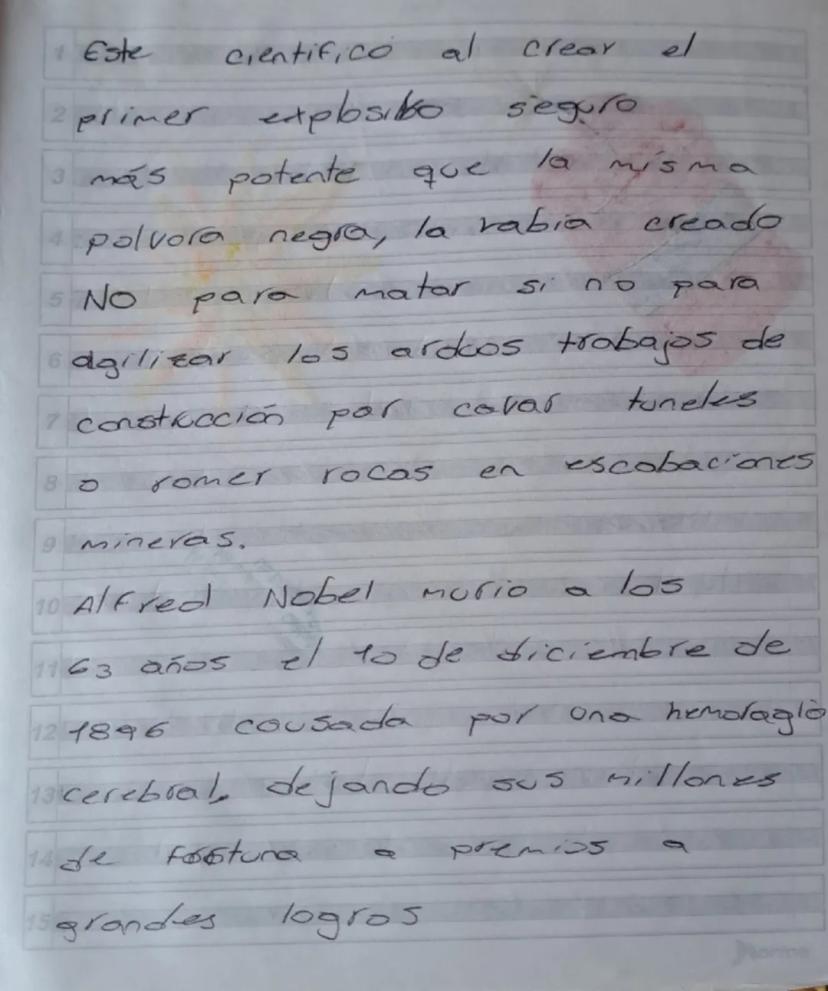 1 Este cientifico al crear el
2 primer explosibo seguro
3 más potente que la misma
4 polvora negra, la rabia creado
5 NO para matar si no para
6 agilizar los arduos trabajos de
7 construcción por cavar tuneles
8 o romer rocas en escobaciones
9 mineras.
10 Alfred Nobel murio a los
11 63 años el 10 de diciembre de
12 1896 cousada por una hemoragia
13 cerebral, dejando sus millones
14 de fortuna a premios a
15 grandes logros
Norma